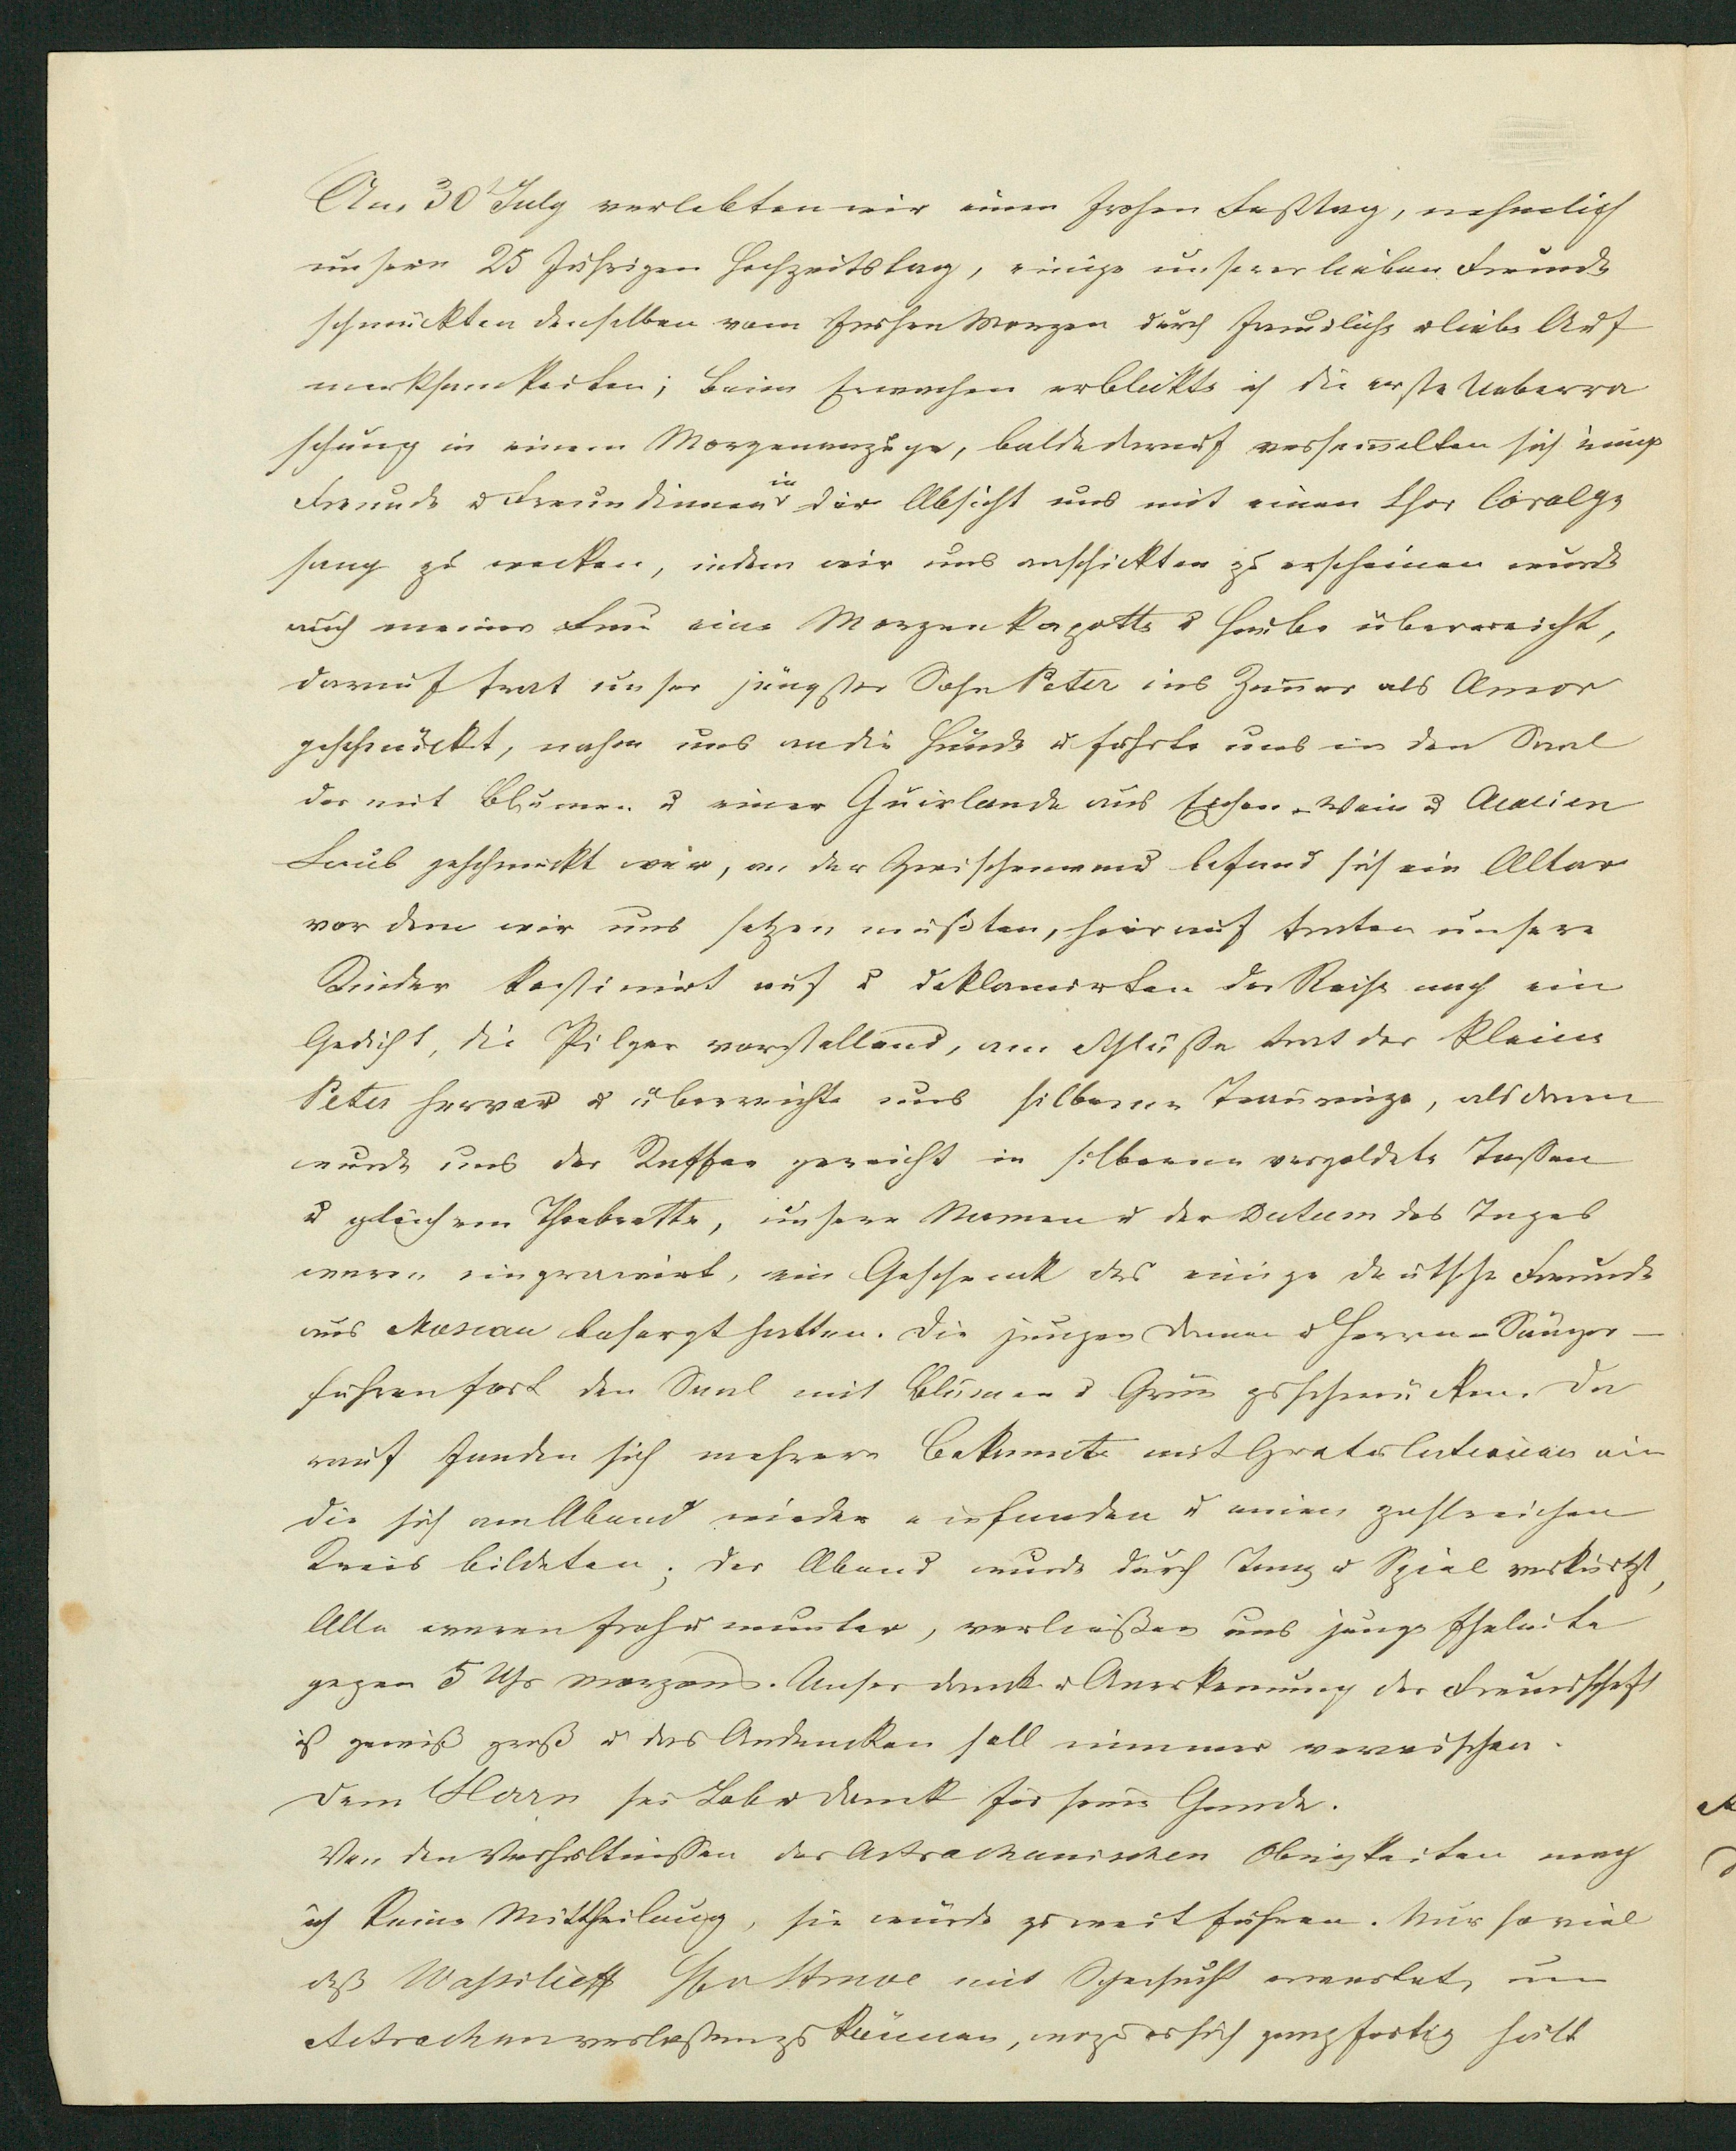 Am 30t July verlebten wir einen frohen Festtag, nehmlich
unsern 25 Jährigen Hochzeitstag, einige unserer lieben Freunde
schmückten denselben vom frühen Morgen durch freundliche u liebe Auf
merksamkeiten; beim Erwachen erblickte ich die erste Ueberra
schung in einem Morgenanzuge, baldedarauf versammelten sich einige
Freunde u Freundinnen in der Absicht uns mit einen Chor Coralge
sang zu wecken, indem wir uns anschickten zu erscheinen wurde
auch meiner Frau eine Morgenkapotte u Haube überreicht,
darauf trat unser jüngster Sohn Peter ins Zimmer als Amor
geschmückt, nahm uns an die Hände u führte uns in den Saal
der mit Blumen u einer Guirlande aus Eschen-Wein u Acacien
Laub geschmückt war, an der Zwischenwand befand sich ein Altar
vor dem wir uns setzen mußten, hierauf traten unsere
Kinder kostimirt auf u deklamirten der Reihe nach ein
Gedicht, die Pilger vorstellend, am Schluße trat der kleine
Peter hervor u überreichte uns silberne Trauringe, alsdann
wurde uns der Kaffee gereicht in silberne vergoldete Tassen
u gleichem Theebrette, unsere Namen u der Datum des Tages
waren eingravirt, ein Geschenk das einige deutsche Freunde
aus Moscau besorgt hatten. Die jungen Damen u Herren-Sänger-
fuhren fort den Saal mit Blumen u Grün zu schmücken. Da
rauf fanden sich mehrere Bekannte mit Gratulationen ein
die sich am Abend wieder einfanden u einen zahlreichen
Kreis bildeten; der Abend wurde durch Tanz u Spiel verkürtzt,
Alle waren froh u munter, verließen uns junge Eheleute
gegen 5 Uhr morgens. Unser Dank u Anerkennung der Freundschaft
ist gewiß groß u das Andencken soll nimmer verwischen.
Dem Herrn sei Lob u Dank für seine Gnade.
Von den Verhältnissen der Astrachanischen Obrigkeiten mach
ich keine Mittheilung, sie würde zu weit führen. Nur so viel
daß Wassilieff H Struve mit Sehnsucht erwartet, um
Astrachan verlassen zu können, wozu er sich ganz fertig hält